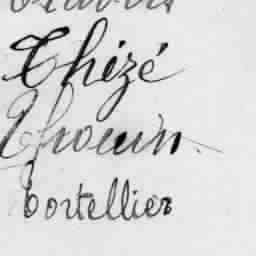 Thézé
Thouin
Tortellier